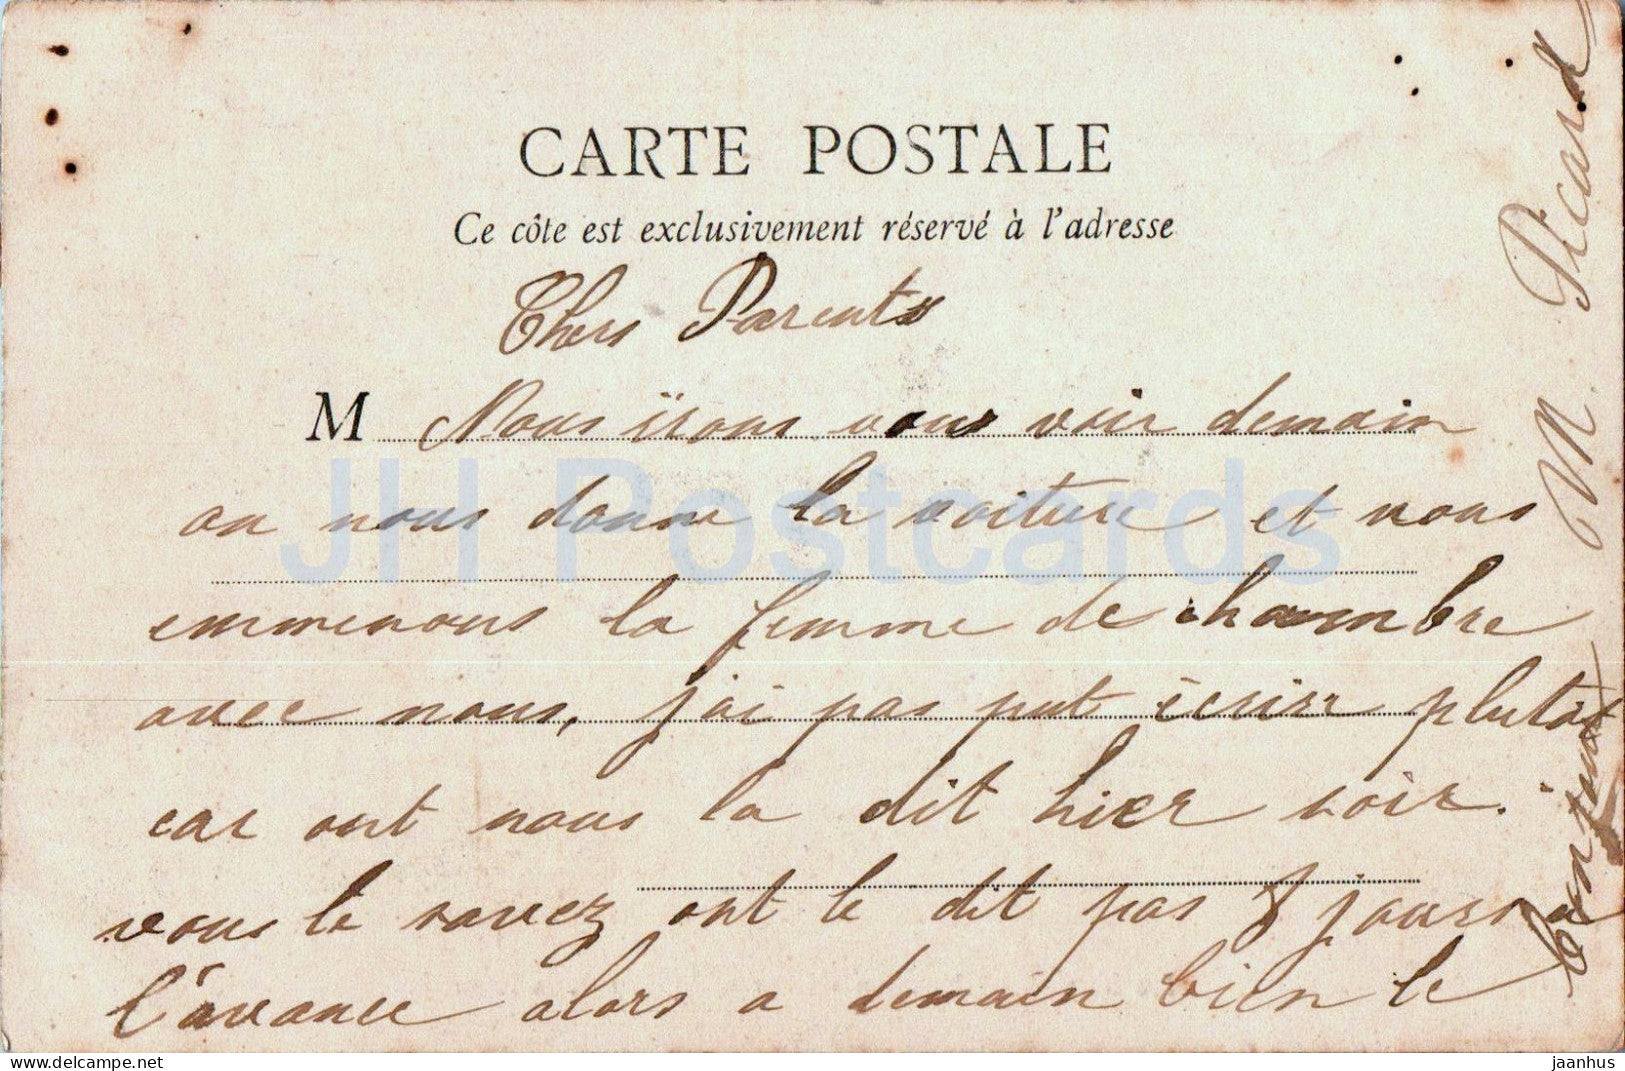 CARTE POSTALE
Ce côte est exclusivement réservé à l'adresse
Chers Parents
M Nous irons vous voir demain
on nous donne la voiture et nous
emmenons la femme de chambre
avec nous, j'ai pas put écrire plutot
car ont nous la dit hier soir.
vous le savez ont le dit pas 8 jours
l'avance alors a demain bien le
bonjour
M Picard
JH Postcards
jaanhus